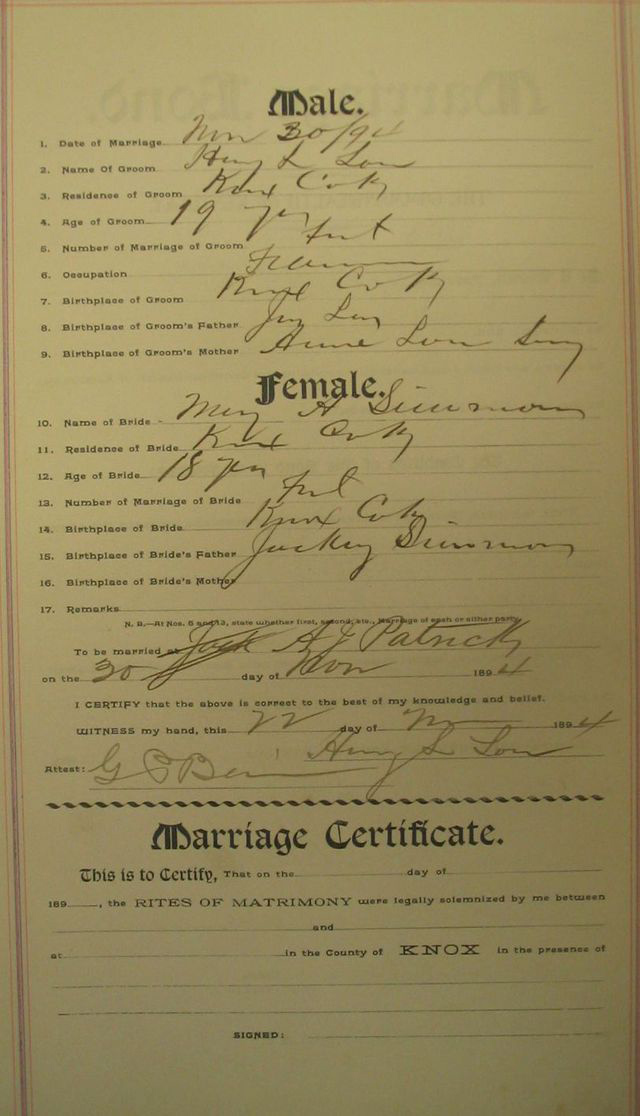 Male.
1. Date of Marriage Nov 30/94
2. Name Of Groom Henry L
3. Residence of Groom Knox Co Ky
4. Age of Groom 19 yrs
5. Number of Marriage of Groom first
6. Occupation Farmer
7. Birthplace of Groom Knox Co Ky
8. Birthplace of Groom's Father
9. Birthplace of Groom's Mother
Female.
10. Name of Bride A Simmons
11. Residence of Bride Knox Co Ky
12. Age of Bride 18 yrs
13. Number of Marriage of Bride first
14. Birthplace of Bride Knox Co Ky
15. Birthplace of Bride's Father Simmons
16. Birthplace of Bride's Mother
17. Remarks
N. B.—At Nos. 5 and 13, state whether first, second, etc., Marriage of each or either party.
To be married at A J Patrick
on the 30 day of Nov 1894
I CERTIFY that the above is correct to the best of my knowledge and belief.
WITNESS my hand, this 22 day of Nov 1894
Henry L
Attest: G
Marriage Certificate.
This is to Certify, That on the day of
189 , the RITES OF MATRIMONY were legally solemnized by me between
and
at in the County of KNOX in the presence of
SIGNED: